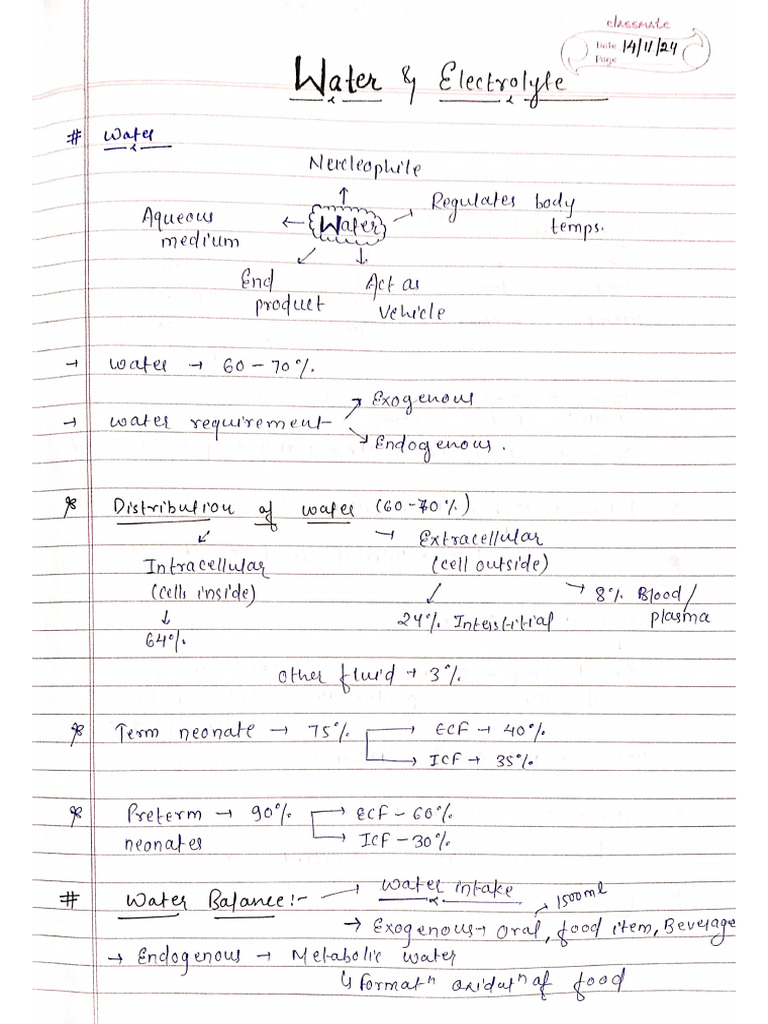 classmate
Date 14/11/24
Page
Water & Electrolyte
# Water
Nercleophile
Aqueous medium ← Water → Regulates body temps.
End product
Act as vehicle
→ Water → 60 – 70%.
→ water requirement
→ Exogenous
→ Endogenous.
Distribution of water (60-70%)
Intracellular (cells inside)
↓
64%.
→ Extracellular (cell outside)
24% Interstitial
→ 8% Blood/ plasma
other fluid → 3%.
Term neonate → 75%
→ ECF → 40%.
→ ICF → 35%.
Preterm neonates → 90%.
→ ECF – 60%.
→ ICF – 30%.
# Water Balance:- → water intake
1500ml
→ Exogenous → Oral, food item, Beverage
→ Endogenous → Metabolic water
↳ formatⁿ oxidatⁿ of food